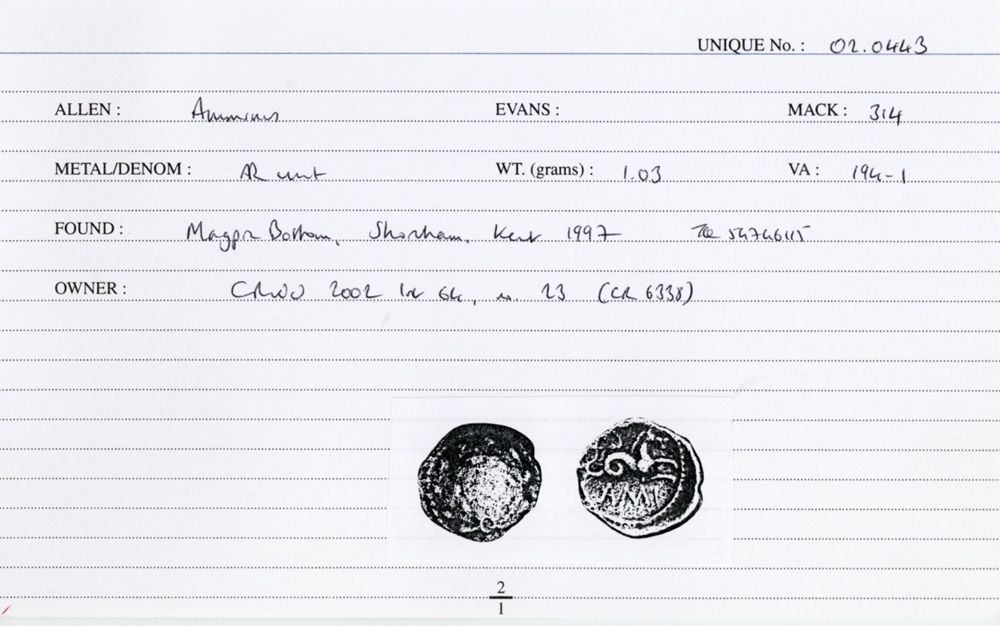 UNIQUE No. : 02.0443
ALLEN : Amminus EVANS : MACK : 314
METAL/DENOM : AR unit WT. (grams) : 1.03 VA : 194-1
FOUND : Bottom, Shoreham, Kent 1997 TQ
OWNER : 2002 64, 23 (CR 6338)
AMI
2
1